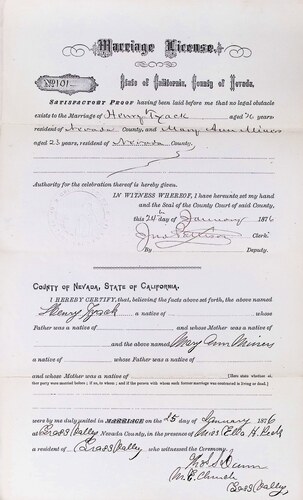 Marriage License.
No. 101.
State of California, County of Nevada.
SATISFACTORY PROOF having been laid before me that no legal obstacle
exists to the Marriage of Henry Tyack aged 26 years
resident of Nevada County, and Mary Ann Miners
aged 23 years, resident of Nevada County.
Authority for the celebration thereof is hereby given.
IN WITNESS WHEREOF, I have hereunto set my hand
and the Seal of the County Court of said County,
this 24th day of January 1876
Clerk.
By Deputy.
COUNTY OF NEVADA, STATE OF CALIFORNIA.
I HEREBY CERTIFY, that, believing the facts above set forth, the above named
Henry Tyack a native of whose
Father was a native of and whose Mother was a native of
and the above named Mary Ann Miners
a native of whose Father was a native of
and whose Mother was a native of
were by me duly united in MARRIAGE on the 25 day of January 1876
at Grass Valley Nevada County, in the presence of Miss Ella H.
a resident of Grass Valley who witnessed the Ceremony.
Dunn
M. E. Church
Grass Valley